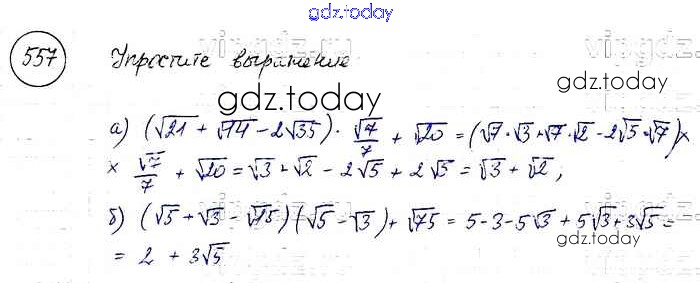 gdz.today
557 Упростите выражение
gdz.today
а) (√21 + √14 - 2√35) · √7/7 + √20 = (√7·√3 + √7·√2 - 2√5·√7) ×
× √7/7 + √20 = √3 + √2 - 2√5 + 2√5 = √3 + √2;
gdz.today
б) (√5 + √3 - √15)(√5 - √3) + √75 = 5-3-5√3 + 5√3 + 3√5 =
gdz.today
= 2 + 3√5